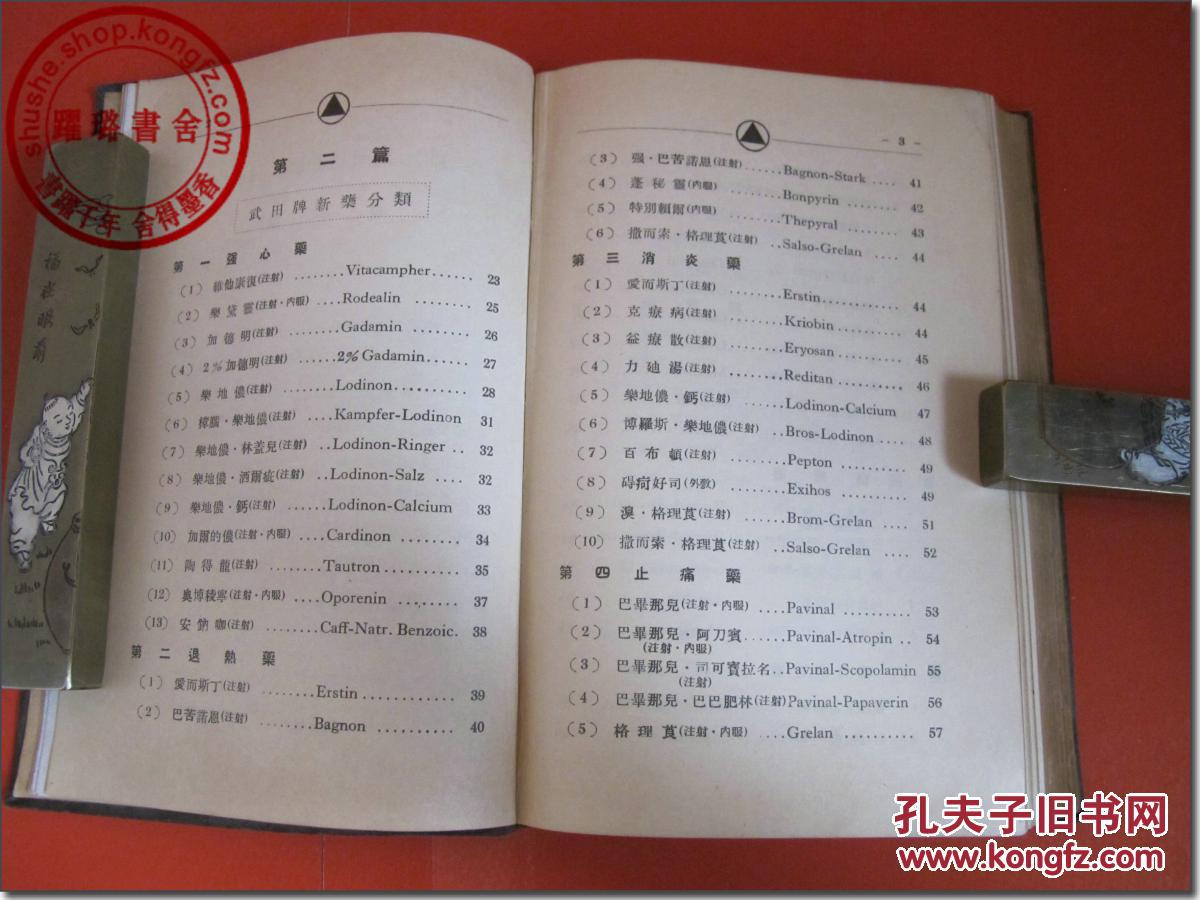 shushe.shop.kongfz.com
躍璐書舍
書躍千年 舍得墨香
福在眼前
第二篇
武田牌新藥分類
第一强心藥
(1) 維他康復(注射) ........Vitacampher...... 23
(2) 樂黛靈(注射・内服) ....Rodealin 25
(3) 加德明(注射) ........Gadamin ........ 26
(4) 2%加德明(注射) ......2% Gadamin...... 27
(5) 樂地儂(注射) ........Lodinon......... 28
(6) 樟腦・樂地儂(注射) ....Kampfer-Lodinon 31
(7) 樂地儂・林蓋兒(注射) ..Lodinon-Ringer .. 32
(8) 樂地儂・洒爾疵(注射) ..Lodinon-Salz .... 32
(9) 樂地儂・鈣(注射) ......Lodinon-Calcium 33
(10) 加爾的儂(注射・内服) ....Cardinon ........ 34
(11) 陶得龍(注射) ........Tautron .......... 35
(12) 奥博稜寧(注射・内服) ....Oporenin ........ 37
(13) 安鈉咖(注射) ........Caff-Natr. Benzoic. 38
第二退熱藥
(1) 愛而斯丁(注射) ........Erstin............ 39
(2) 巴苦諾恩(注射) ........Bagnon .......... 40
- 3 -
(3) 强・巴苦諾恩(注射) ......Bagnon-Stark .... 41
(4) 蓬秘靈(内服) ........Bonpyrin ........ 42
(5) 特別賴爾(内服) ........Thepyral ........ 43
(6) 撒而索・格理莨(注射) ..Salso-Grelan .... 44
第三消炎藥
(1) 愛而斯丁(注射) ........Erstin.......... 44
(2) 克療病(注射) ........Kriobin.......... 44
(3) 益療散(注射) ........Eryosan.......... 45
(4) 力廸湯(注射) ........Reditan.......... 46
(5) 樂地儂・鈣(注射) ......Lodinon-Calcium 47
(6) 博羅斯・樂地儂(注射) ..Bros-Lodinon.... 48
(7) 百布頓(注射) ........Pepton .......... 49
(8) 好司(外敷) ........Exihos .......... 49
(9) 溴・格理莨(注射) ......Brom-Grelan .... 51
(10) 撒而索・格理莨(注射) ..Salso-Grelan.... 52
第四止痛藥
(1) 巴畢那兒(注射・内服) ....Pavinal .......... 53
(2) 巴畢那兒・阿刀賓......Pavinal-Atropin .. 54
(注射・内服)
(3) 巴畢那兒・司可寶拉名..Pavinal-Scopolamin 55
(注射)
(4) 巴畢那兒・巴巴肥林(注射)Pavinal-Papaverin 56
(5) 格理莨(注射・内服) ....Grelan .......... 57
孔夫子旧书网
www.kongfz.com